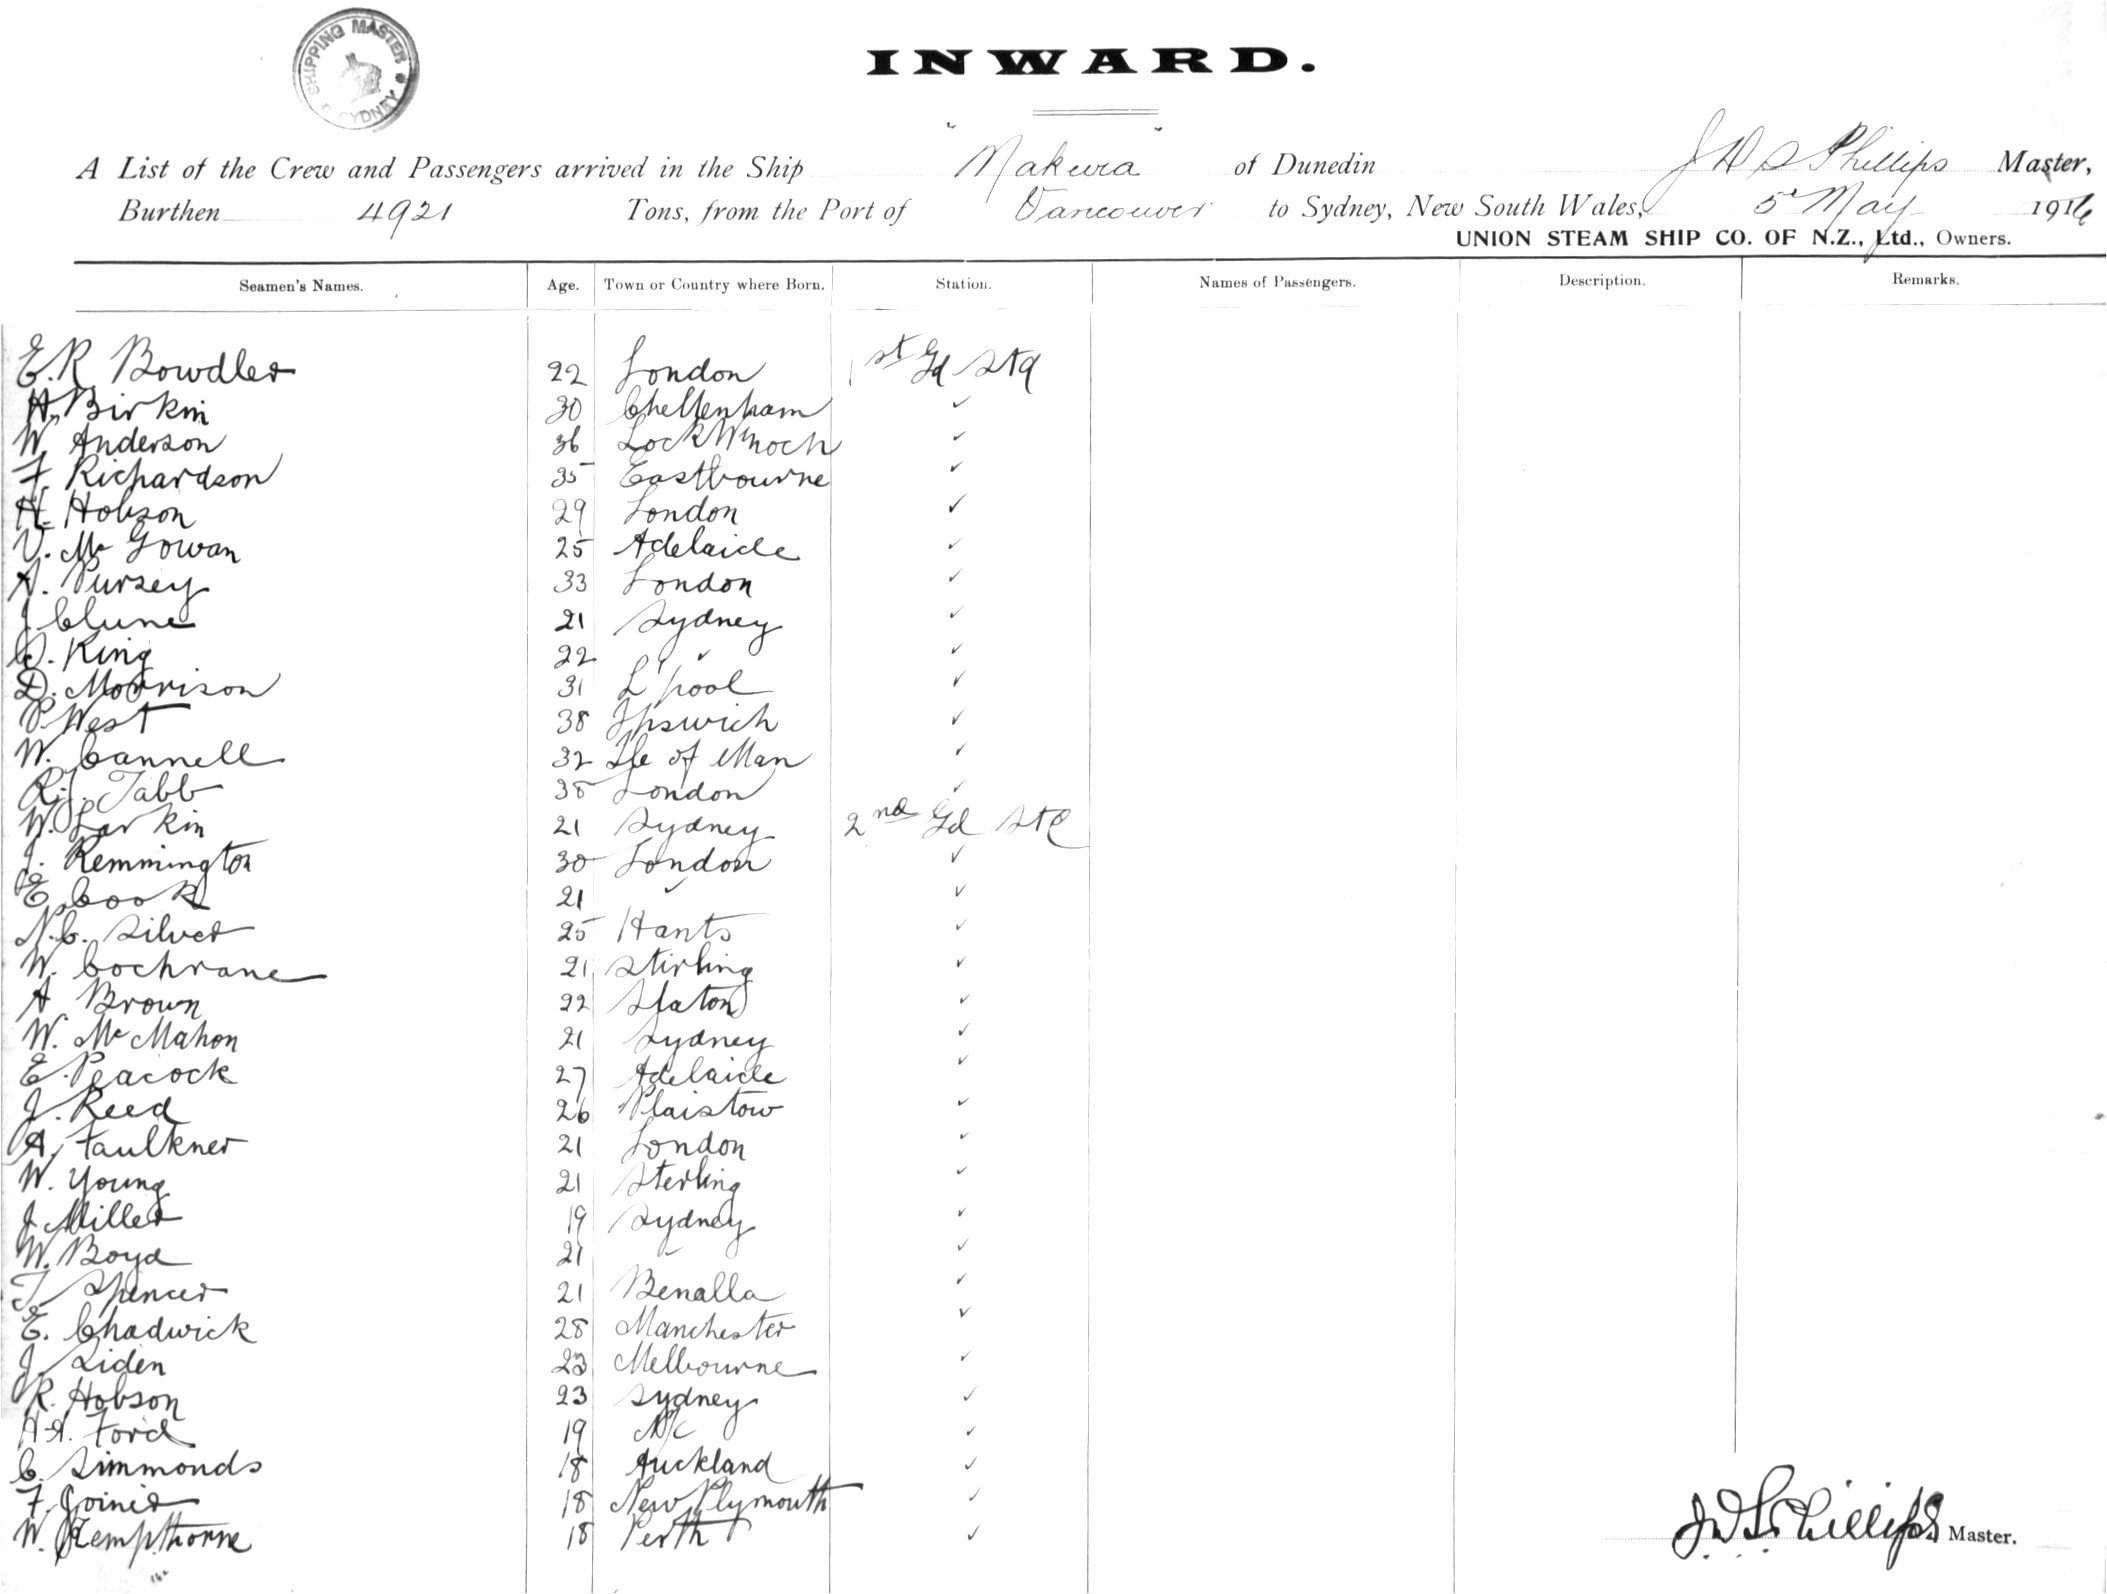 SHIPPING MASTER SYDNEY
INWARD.
A List of the Crew and Passengers arrived in the Ship Makura of Dunedin J D S Phillips Master,
Burthen 4921 Tons, from the Port of Vancouver to Sydney, New South Wales, 5 May 1916
UNION STEAM SHIP CO. OF N.Z., Ltd., Owners.
Seamen's Names. Age. Town or Country where Born. Station. Names of Passengers. Description. Remarks.
E.R Bowdler 22 London 1st Gd Std
H. Birkin 30 Cheltenham ✓
W. Anderson 36 LockWnoch ✓
F. Richardson 35 Eastbourne ✓
H. Hobson 29 London ✓
V. Mc Gowan 25 Adelaide ✓
A. Pursey 33 London ✓
J. Clune 21 Sydney ✓
D. King 22 ✓ ✓
D. Morrison 31 L'pool ✓
P. West 38 Ipswich ✓
W. Cannell 32 Ile of Man ✓
R.J. Tabb 38 London ✓
W. Larkin 21 Sydney 2nd Gd Std
J. Remmington 30 London ✓
E. Cook 21 ✓ ✓
N.C. Silver 25 Hants ✓
W. Cochrane 21 Stirling ✓
A. Brown 22 Slaton ✓
W. Mc Mahon 21 Sydney ✓
E. Peacock 27 Adelaide ✓
J. Reed 26 Plaistow ✓
A. Faulkner 21 London ✓
W. Young 21 Sterling ✓
J. Miller 19 Sydney ✓
W. Boyd 21 ✓ ✓
T. Spencer 21 Benalla ✓
E. Chadwick 28 Manchester ✓
J. Liden 23 Melbourne ✓
R. Hobson 23 Sydney ✓
H.A. Ford 19 N/C ✓
C. Simmonds 18 Auckland ✓
F. Joiner 18 New Plymouth ✓
W. Kempthorne 18 Perth ✓
J D S Phillips Master.